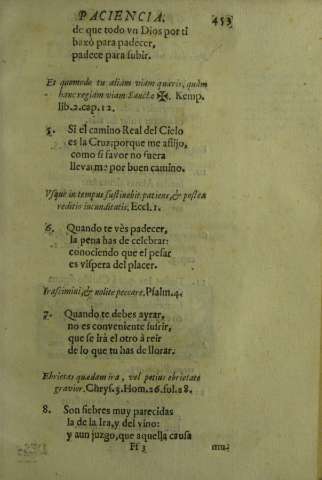 PACIENCIA. 453
de que todo vn Dios por ti
baxò para padecer,
padece para subir.
Et quomodo tu aliam viam quæris, quàm
hanc regiam viam Sanctæ ✠. Kemp.
lib.2.cap.12.
5. Si el camino Real del Cielo
es la Cruz; porque me aflijo,
como si favor no fuera
llevarme por buen camino.
Vsque in tempus sustinebit patiens, & postea
reditio iucunditatis. Eccl. 1.
6. Quando te vès padecer,
la pena has de celebrar:
conociendo que el pesar
es vispera del placer.
Irascimini, & nolite peccare. Psalm. 4.
7. Quando te debes ayrar,
no es conveniente sufrir,
que se irà el otro à reir
de lo que tu has de llorar.
Ebrietas quædam ira, vel potius ebrietate
gravior. Chrys. 5. Hom. 26. fol. 28.
8. Son fiebres muy parecidas
la de la Ira, y del vino:
y aun juzgo, que aquella causa
Ff 3 mu-